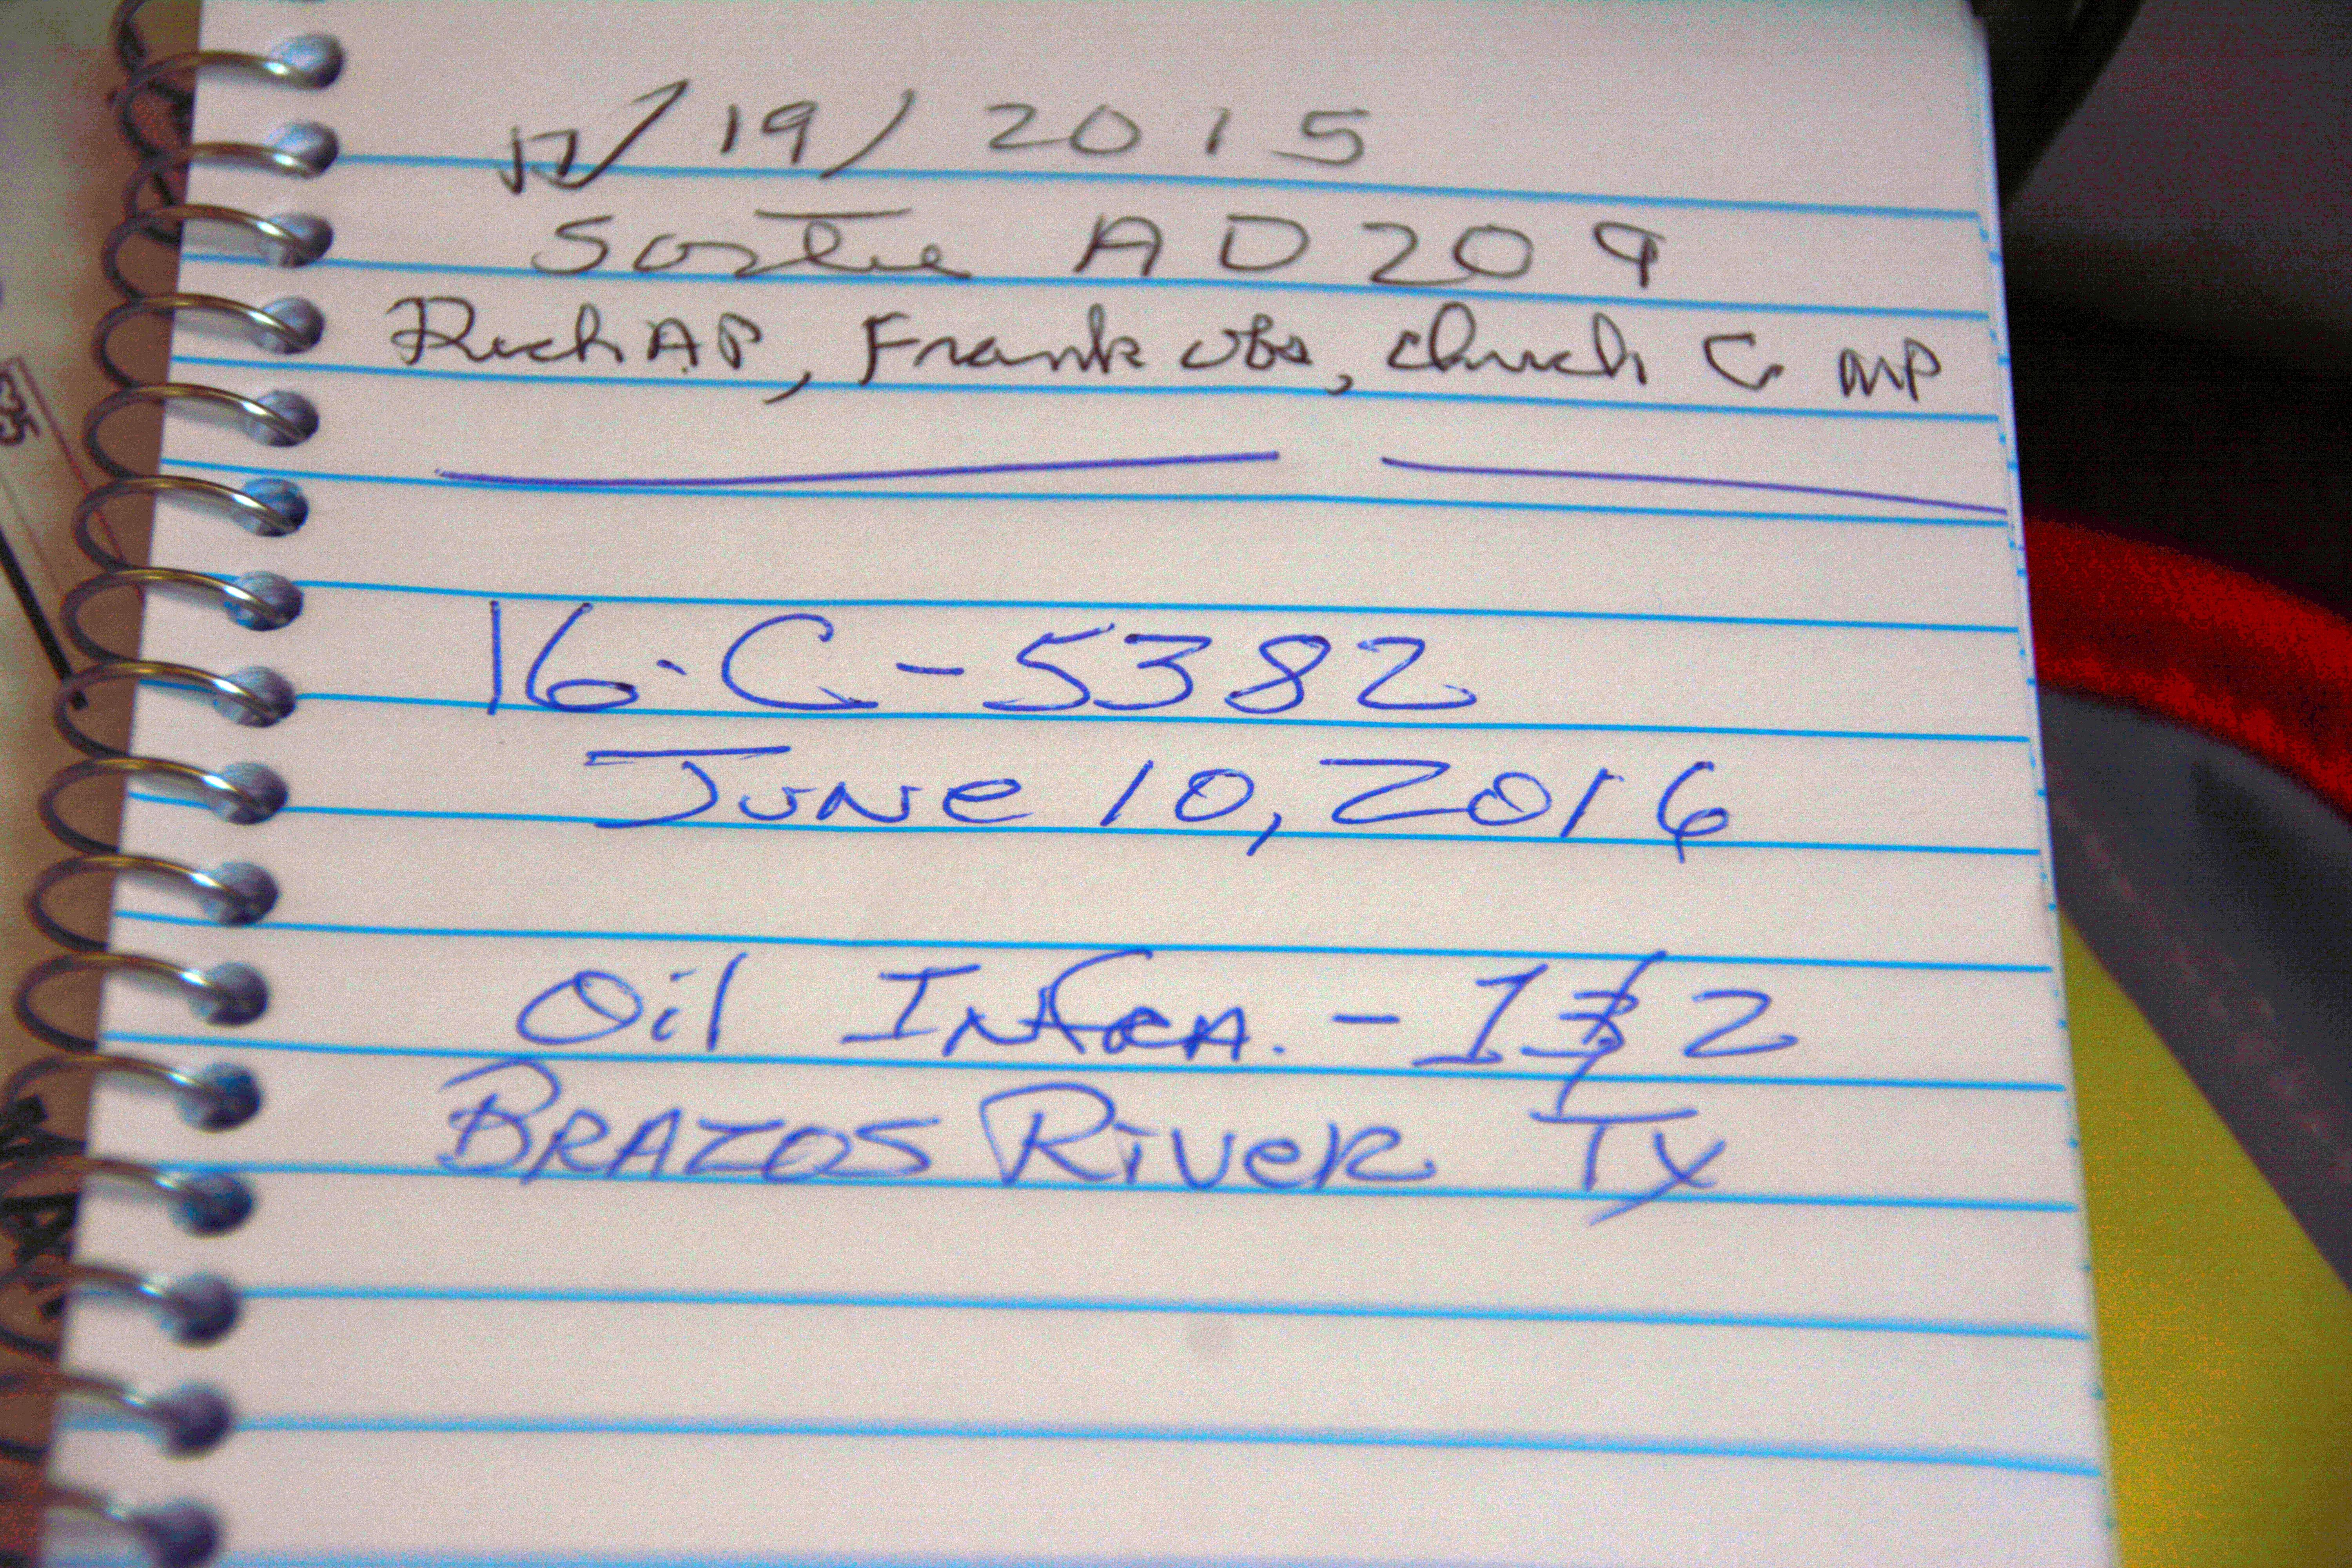 /19/2015
Sortie AD209
Rich AP, Frank obs, Chuck C MP
16-C-5382
June 10, 2016
Oil Infra. - 1 & 2
Brazos River Tx